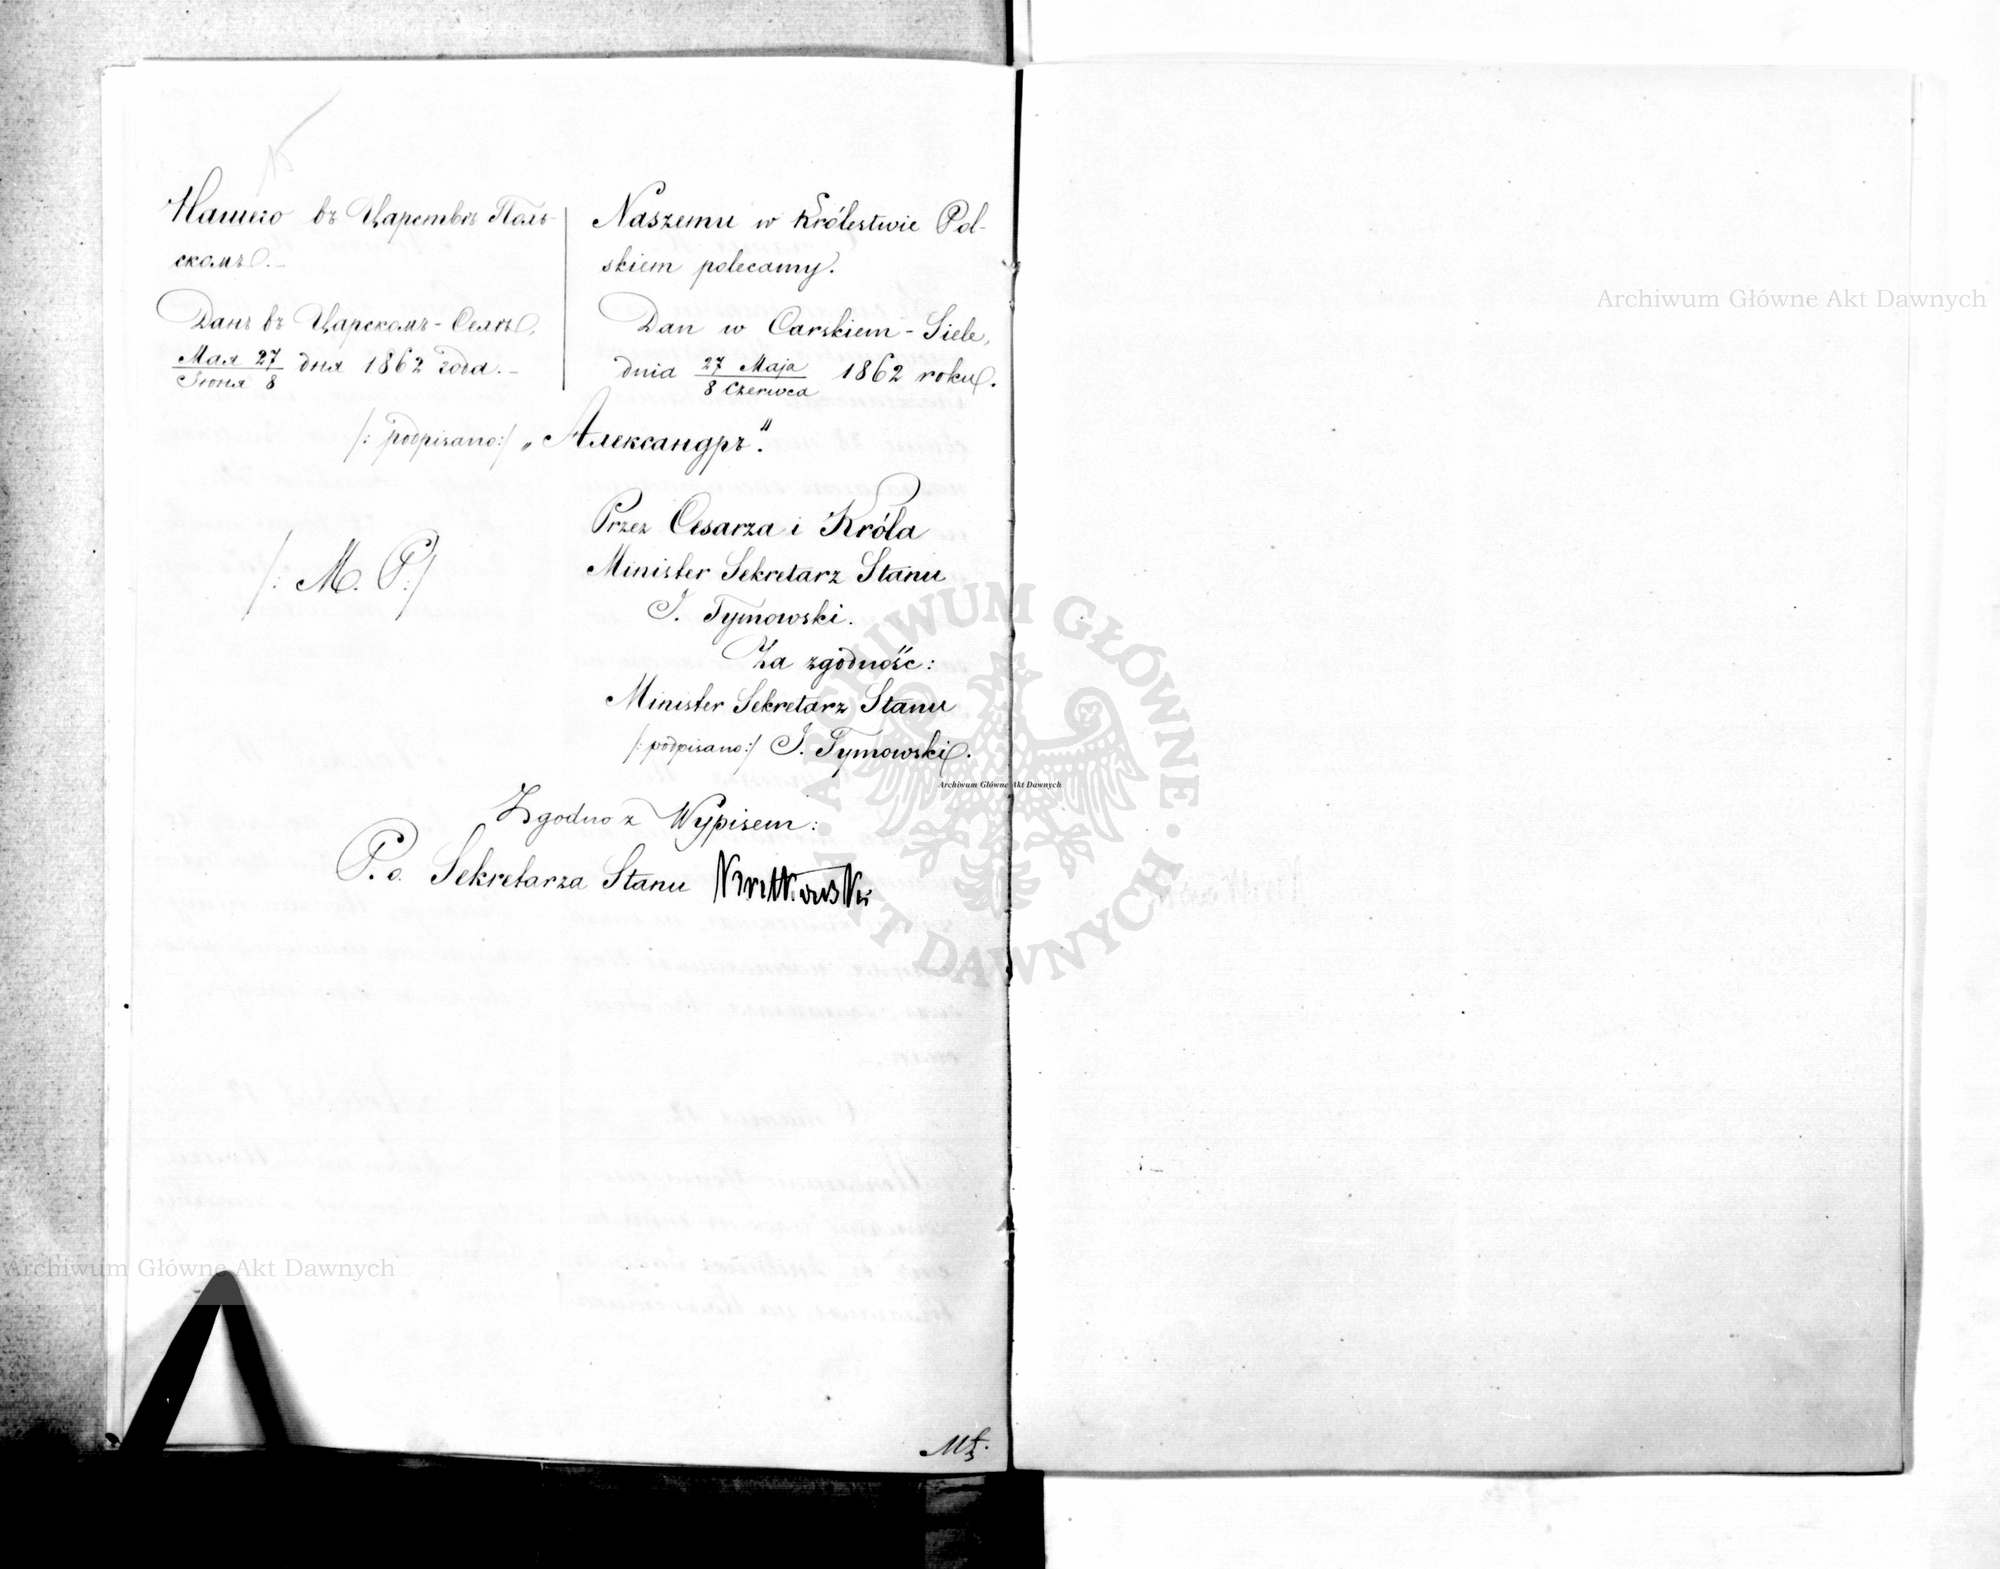 Нашего въ Царствѣ Поль-
скомъ.
Данъ въ Царскомъ-Селѣ,
Мая 27
Іюня 8
дня 1862 года.
Naszemu w Królestwie Pol-
skiem polecamy.
Dan w Carskiem-Siele,
dnia 27 Maja
8 Czerwca
1862 roku.
/: podpisano:/ „Александръ".
/: M. P:/
Przez Cesarza i Króla
Minister Sekretarz Stanu
J. Tymowski.
Za zgodność:
Minister Sekretarz Stanu
/: podpisano:/ J. Tymowski.
Zgodno z Wypisem:
P. o. Sekretarza Stanu
Archiwum Główne Akt Dawnych
Archiwum Główne Akt Dawnych
Archiwum Główne Akt Dawnych
ARCHIWUM GŁÓWNE AKT DAWNYCH